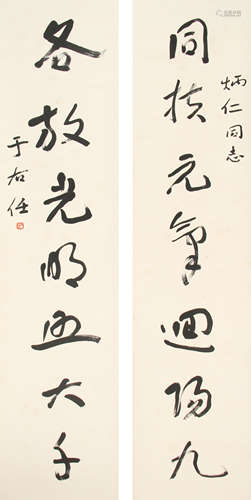 炳仁同志
同扶元氣迴陽九
各放光明大千
于右任